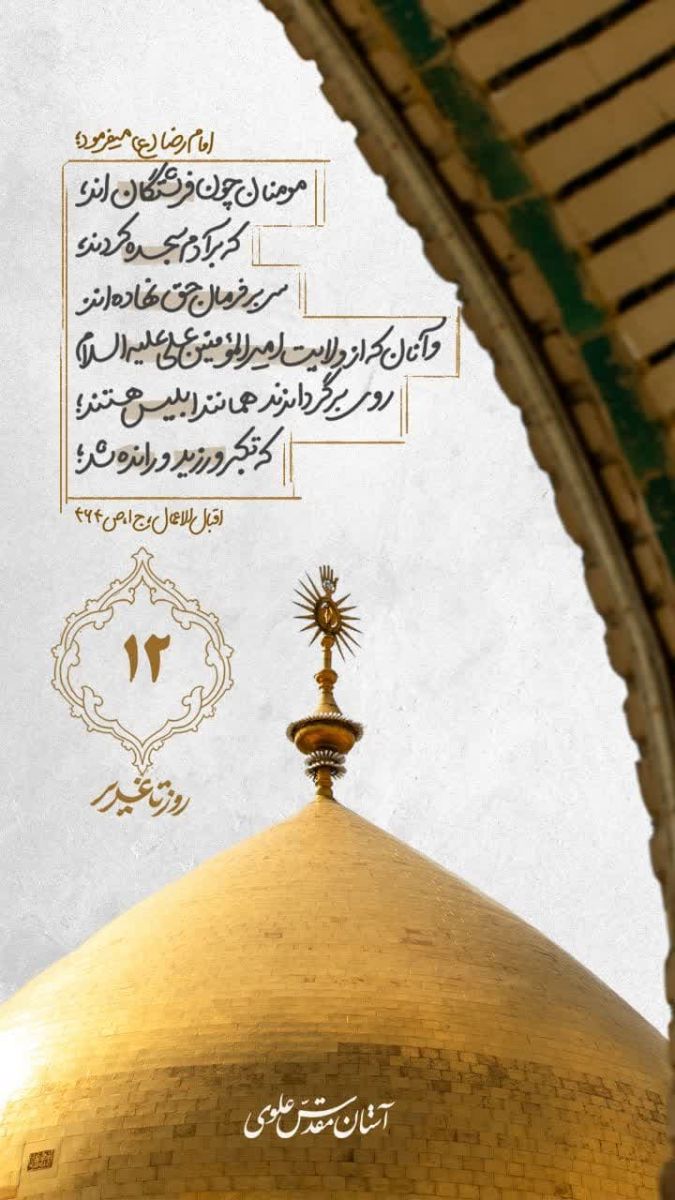 امام رضا (ع) میفرمود؛
مومنان چون فرشتگان اند؛
که بر آدم سجده کردند؛
سر بر فرمان حق نهاده اند؛
و آنان که از ولایت امیرالمؤمنین علی علیه السلام
روی برگردانند همانند ابلیس هستند؛
که تکبر ورزید و رانده شد؛
اقبال الاعمال، ج ۱، ص ۴۶۴
۱۲
روز تا غدیر
آستان مقدس علوی